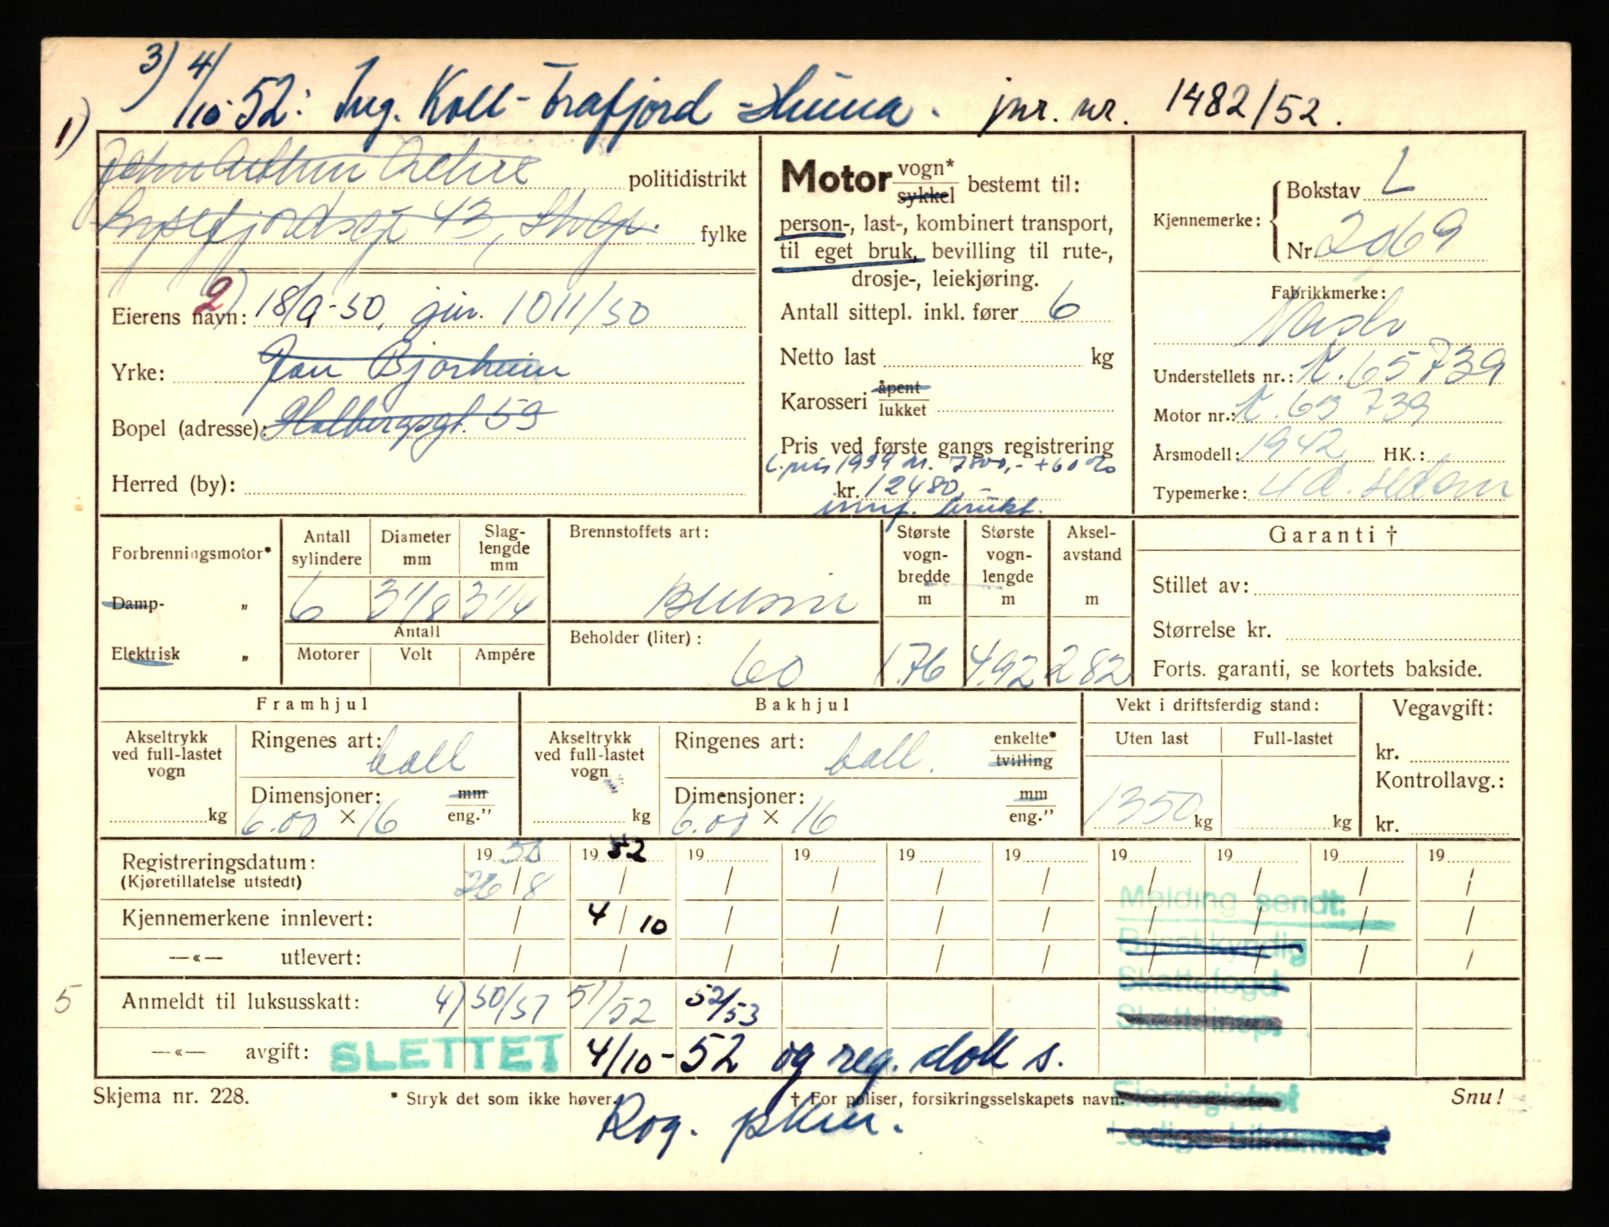 3) 4/10-52: Ing. Koll-Frafjord jnr. nr. 1482/52.
1)
John
politidistrikt
43,
fylke
Eierens navn: 2) 18/9-50, jnr. 1011/50
Yrke: Jan Bjorheim
Bopel (adresse): Holbergsgt. 59
Herred (by):
Motor vogn* sykkel bestemt til:
person-, last-, kombinert transport,
til eget bruk, bevilling til rute-,
drosje-, leiekjøring.
Antall sittepl. inkl. fører 6
Netto last kg
Karosseri åpent lukket
Pris ved første gangs registrering
L.pris 1939 kr. 7800,- + 60 %
kr. 12480,-
innf. brukt.
Kjennemerke: Bokstav L
Nr. 2069
Fabrikkmerke:
Nash
Understellets nr.: K.65739
Motor nr.: K.65739
Årsmodell: 1942 HK.:
Typemerke: 4 d. sedan
Forbrenningsmotor*
Damp- "
Elektrisk "
Antall sylindere
Diameter mm
Slag-lengde mm
6 3 1/8 3 3/4
Antall
Motorer Volt Ampére
Brennstoffets art:
Bensin
Beholder (liter):
60
Største vogn-bredde m
Største vogn-lengde m
Aksel-avstand m
1.76 4.92 2 82
Garanti †
Stillet av:
Størrelse kr.
Forts. garanti, se kortets bakside.
Framhjul
Akseltrykk ved full-lastet vogn
kg
Ringenes art: ball
Dimensjoner: mm eng."
6.00 × 16
Bakhjul
Akseltrykk ved full-lastet vogn
kg
Ringenes art: ball. enkelte* tvilling
Dimensjoner: mm eng."
6.00 × 16
Vekt i driftsferdig stand:
Uten last Full-lastet
1350 kg kg
Vegavgift:
kr.
Kontrollavg.:
kr.
Registreringsdatum: 19 50 19 52 19 19 19 19 19 19 19 19
(Kjøretillatelse utstedt) 26/8 / / / / / / / / /
Kjennemerkene innlevert: / 4/10 / / / / / / / /
—«— utlevert: / / / / / / / / / /
Melding sendt:
Bilsakkyndig
Skattefogd
Skatteinsp.
5 Anmeldt til luksusskatt: 4) 50/51 51/52 52/53
—«— avgift: SLETTET 4/10-52 og reg. dok s.
Rog. pkm.
Skjema nr. 228.
* Stryk det som ikke høver.
† For poliser, forsikringsselskapets navn.
Snu!
Eierregistret
Ledige bilnummer